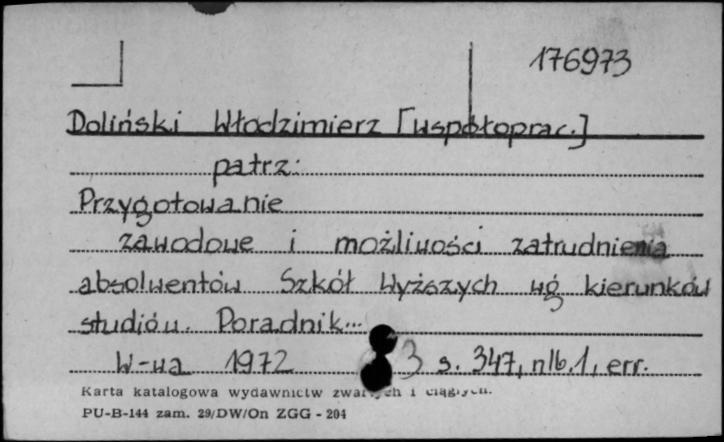 176973
Doliński Włodzimierz [współoprac.]
patrz:
Przygotowanie
zawodowe i możliwości zatrudnienia
absolwentów Szkół Wyższych wg kierunków
studiów. Poradnik...
W-wa 1972 3 s. 347, nlb. 1, err.
Karta katalogowa wydawnictw zwartych i ciągłych.
PU-B-144 zam. 29/DW/On ZGG - 204